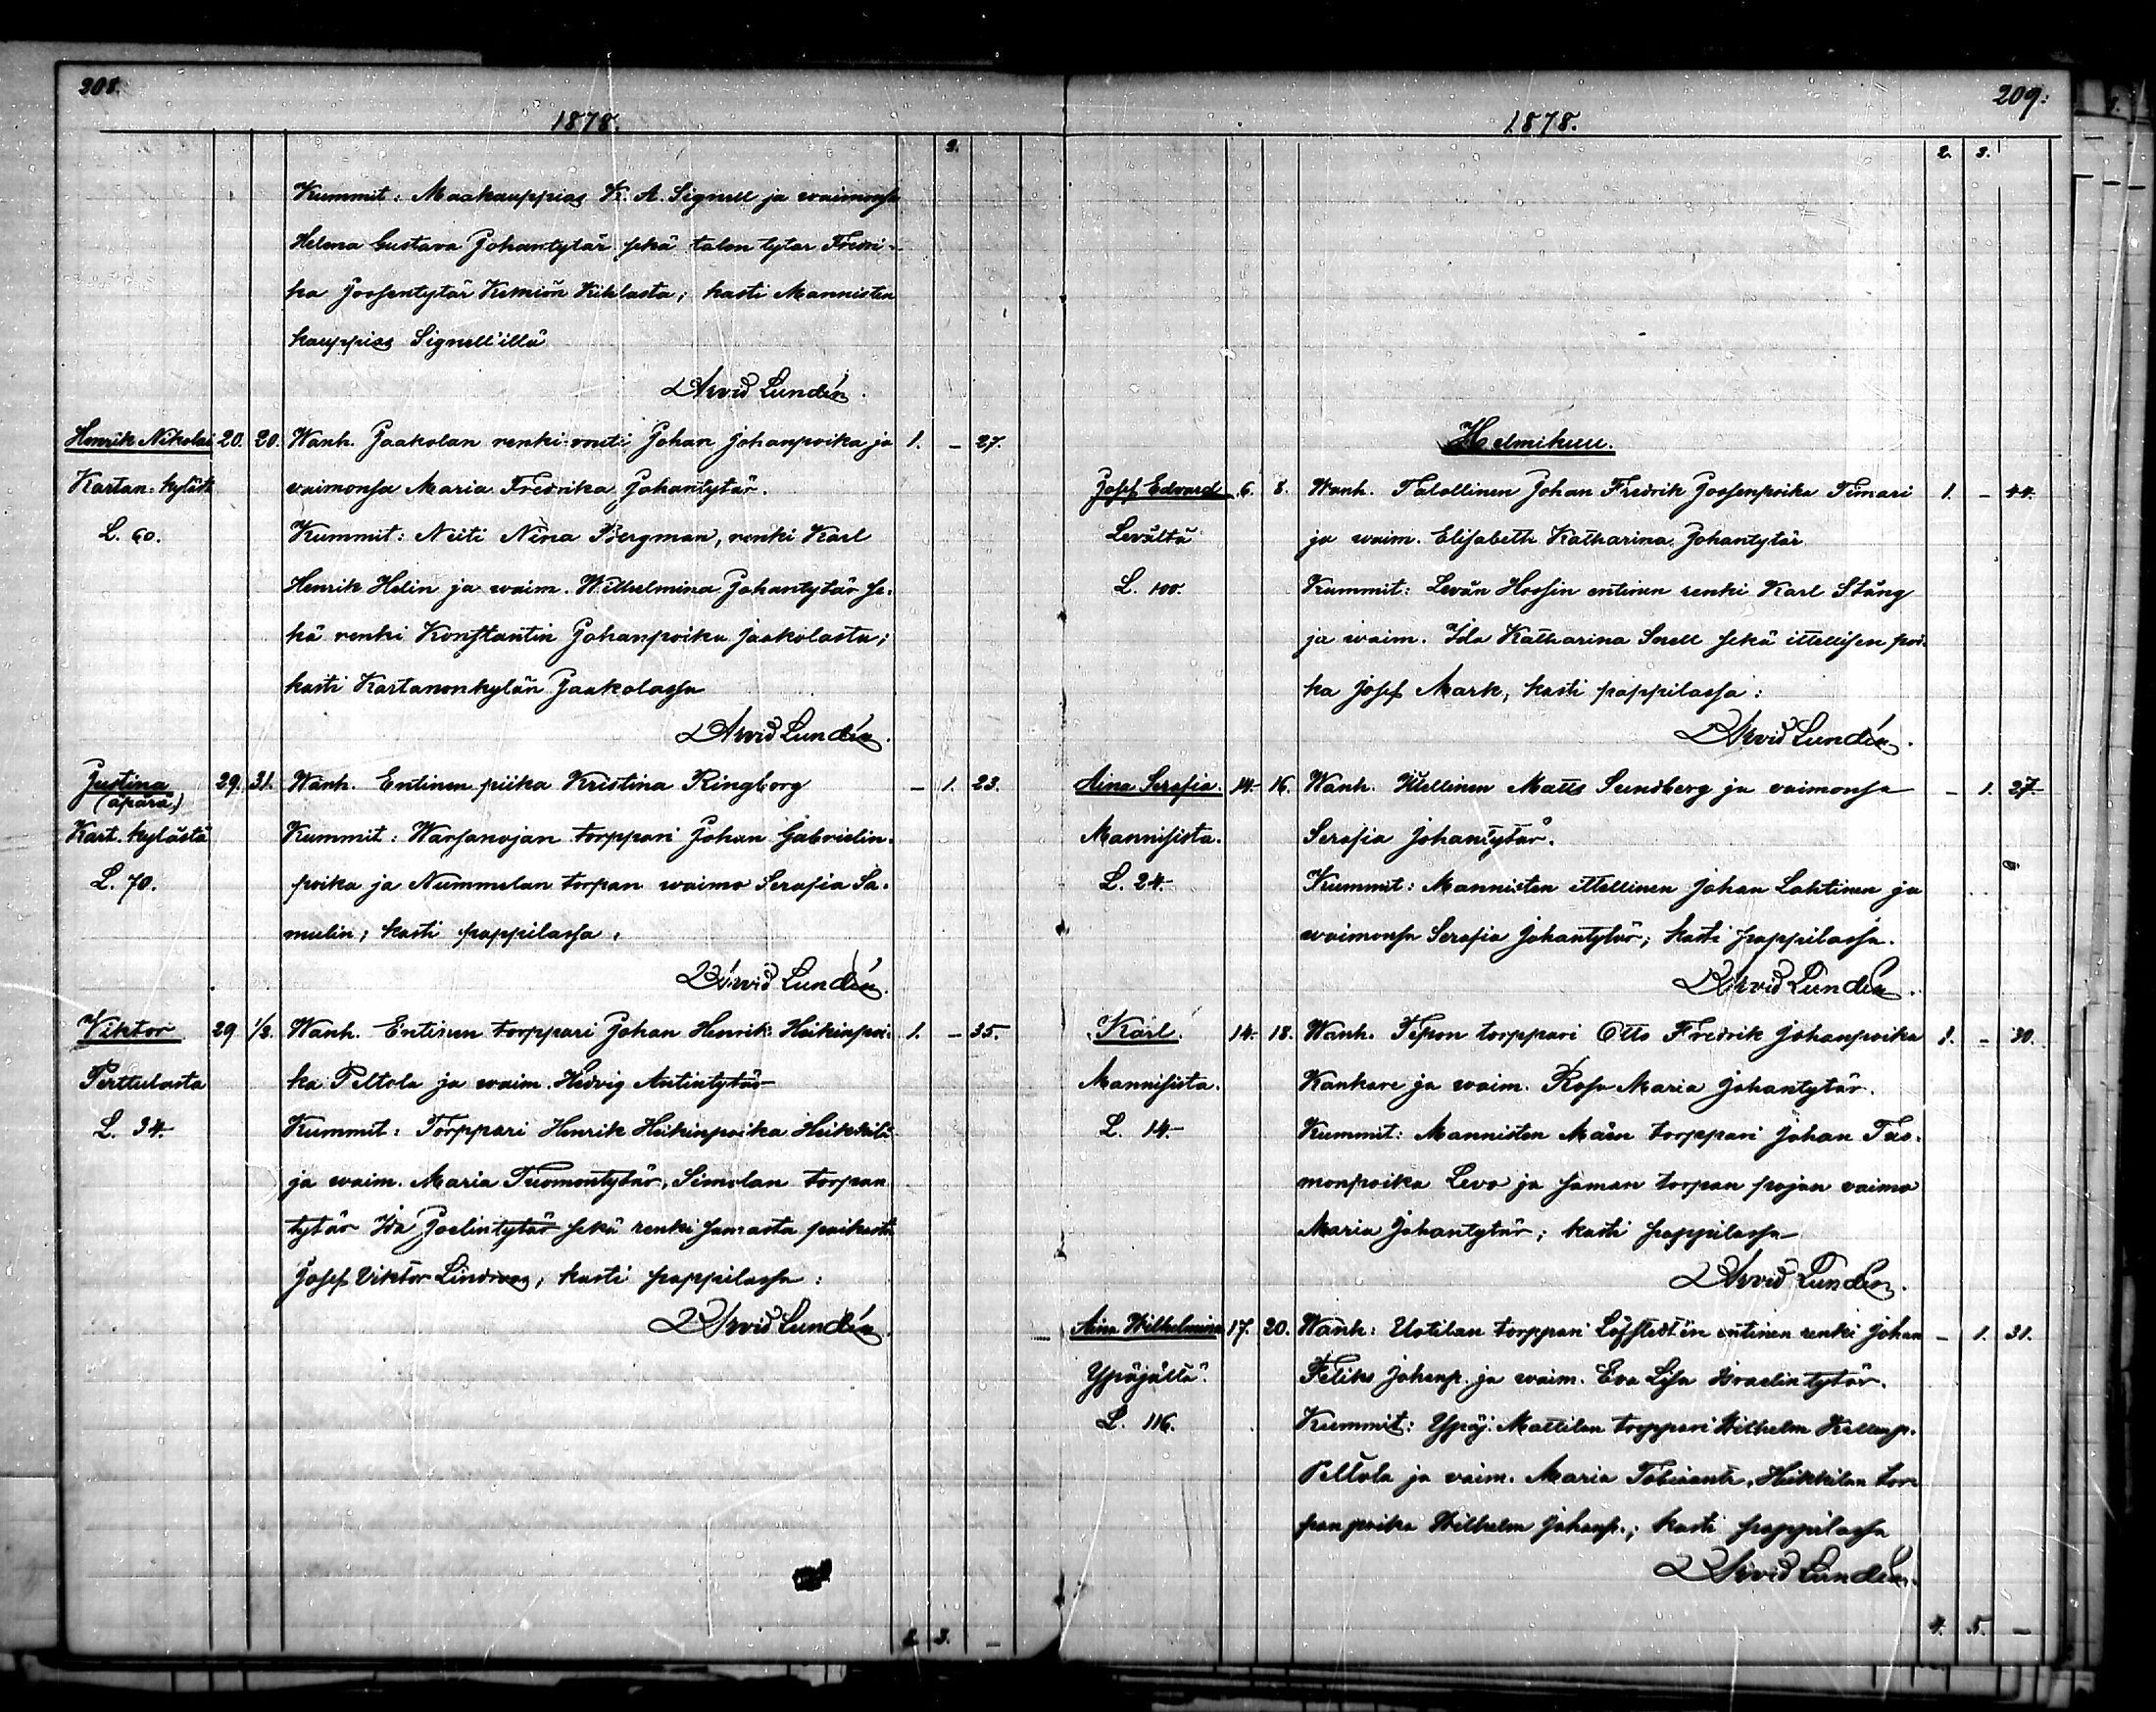 208.
1878.
2.
Kummit: Maakauppias K. A. Signell ja waimonsa
Helena Gustava Johantytär sekä talon tytär Fredri-
ka Joosentytär Kihlasta; kasti Mannisten
kauppias Signell'illä
Arvid Lundén.
Henrik Nikolai 20. 20. Wanh. Jaakolan renki-vouti Johan Johanpoika ja 1. – 27.
Kartan. kylästä vaimonsa Maria Fredrika Johantytär.
L. 60. Kummit: Neiti Nina Bergman, renki Karl
Henrik Helin ja waim. Wilhelmina Johantytär se-
kä renki Konstantin Johanpoika Jaakolasta;
kasti Kartanonkylän Jaakolassa
Arvid Lundén.
Justina 29. 31. Wanh. Entinen piika Kristina Ringborg – 1. 23.
(äpärä)
Kart. kylästä Kummit: Warsanojan torppari Johan Gabrielin-
L. 70. poika ja Nummelan torpan waimo Serafia Sa-
mulin; kasti pappilassa.
Arvid Lundén.
Viktor 29. 1/2. Wanh. Entinen torppari Johan Henrik Heikinpoi- 1. – 35.
Perttulasta ka Peltola ja waim. Hedvig Antintytär
L. 34. Kummit: Torppari Henrik Heikinpoika Heikkilä
ja waim. Maria Tuomontytär, Simolan torpan
tytär Ida Joelintytär sekä renki samasta paikasta
Josef Viktor Lindroos; kasti pappilassa:
Arvid Lundén.
2. 3. –
209.
1878.
2. 3.
Helmikuu.
Josef Edvard 6. 8. Wanh. Talollinen Johan Fredrik Joosenpoika Timari 1. – 44.
Levältä ja waim. Elisabeth Katharina Johantytär
L. 100. Kummit: Levän Hossin entinen renki Karl Stång
ja waim. Ida Katharina Snell sekä ittellisen poi-
ka Josef Mark, kasti pappilassa:
Arvid Lundén.
Aina Serafia. 14. 16. Wanh. Ittellinen Matts Sundberg ja vaimonsa – 1. 27.
Mannisista. Serafia Johantytär.
L. 24. Kummit: Mannisten ittellinen Johan Lahtinen ja
waimonsa Serafia Johantytär; kasti pappilassa.
Arvid Lundén.
Karl. 14. 18. Wanh. Tepon torppari Otto Fredrik Johanpoika 1. – 30.
Mannisista. Kankare ja waim. Rosa Maria Johantytär.
L. 14. Kummit: Mannisten torppari Johan Tuo-
monpoika Levo ja saman torpan pojan vaimo
Maria Johantytär; kasti pappilassa
Arvid Lundén.
Aina Wilhelmina 17. 20. Wanh: Uotilan torppari Löfstedt'in entinen renki Johan – 1. 31.
Ypäjältä. Feliks Johanp. ja waim. Eva Lisa Israelintytär.
L. 116. Kummit: Ypäj. Mattilan torppari Wilhelm Kallenp.
Peltola ja vaim. Maria Tobiaant., Heikkilän tor-
panpoika Wilhelm Johanp.; kasti pappilassa
Arvid Lundén.
4. 5. –